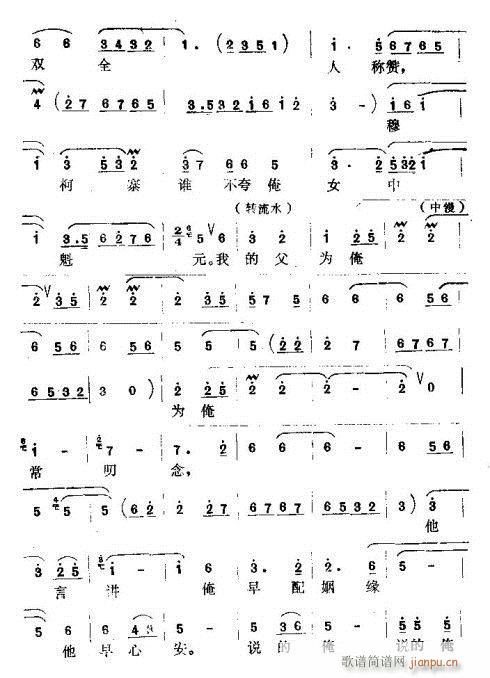 6 6 3432 1· (2351) 1· 5 6765
双 全 人 称赞,
4 (27 6765 3·532 1612 3 -) 1 6 1
穆
1 3 53 2 3 7 6 6 5 3· 2532 1
柯 寨 谁 不夸俺 女 中
(转流水) (中慢)
1 3·5 6276 2/4 5 6 3 1 25 2 2
魁 元。我 的 父 为 俺
2 35 2 2 2 35 57 5 6 6 6 56
6 56 56 5 5 (22 22 6767
6532 3 0) 2 25 2 2 - 2 0
为 俺
1 - 7 - 7· 2 6 6 6 56
常 叨 念,
5 5 5 (62 2 27 6767 6532 3) 3
他
3 25 1 1 5 - 1 6 3· 2 5 -
言 讲 俺 早 配 姻 缘
5 6 6 43 5 - 5 36 5 5 55 5
他 早 心 安。 说 的 俺 说的 俺
歌谱简谱网
jianpu.cn